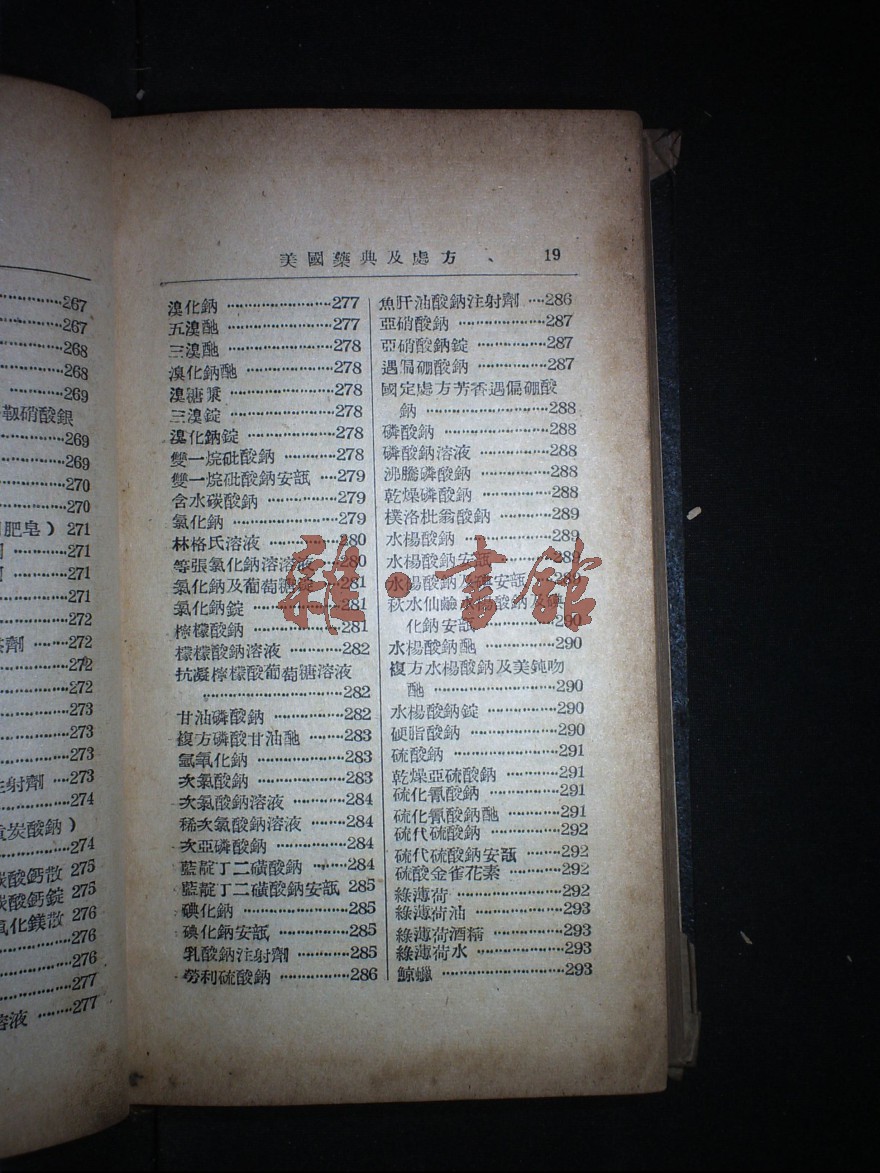 267
267
268
268
269
硝酸銀
269
269
270
270
肥皂）271
271
271
272
劑 272
272
272
273
273
273
射劑 273
274
炭酸鈉）
274
酸鈣散 275
酸鈣錠 275
氧化鎂散 276
276
276
277
溶液 277
美國藥典及處方 19
溴化鈉 277
五溴酏 277
三溴酏 278
溴化鈉酏 278
溴糖漿 278
三溴錠 278
溴化鈉錠 278
雙一烷砒酸鈉 278
雙一烷砒酸鈉安瓿 279
含水碳酸鈉 279
氯化鈉 279
林格氏溶液 280
等張氯化鈉溶液 280
氯化鈉及葡萄糖錠 281
氯化鈉錠 281
檸檬酸鈉 281
檸檬酸鈉溶液 282
抗凝檸檬酸葡萄糖溶液
282
甘油磷酸鈉 282
複方磷酸甘油酏 283
氫氧化鈉 283
次氯酸鈉 283
次氯酸鈉溶液 284
稀次氯酸鈉溶液 284
次亞磷酸鈉 284
藍靛丁二磺酸鈉 284
藍靛丁二磺酸鈉安瓿 285
碘化鈉 285
碘化鈉安瓿 285
乳酸鈉注射劑 285
勞利硫酸鈉 286
魚肝油酸鈉注射劑 286
亞硝酸鈉 287
亞硝酸鈉錠 287
過偏硼酸鈉 287
國定處方芳香過偏硼酸
鈉 288
磷酸鈉 288
磷酸鈉溶液 288
沸騰磷酸鈉 288
乾燥磷酸鈉 288
樸洛枇翁酸鈉 289
水楊酸鈉 289
水楊酸鈉安瓿 289
水楊酸鈉及碘安瓿 289
秋水仙鹼水楊酸鈉及碘
化鈉安瓿 290
水楊酸鈉酏 290
複方水楊酸鈉及美鈍吻
酏 290
水楊酸鈉錠 290
硬脂酸鈉 290
硫酸鈉 291
乾燥亞硫酸鈉 291
硫化氰酸鈉 291
硫化氰酸鈉酏 291
硫代硫酸鈉 292
硫代硫酸鈉安瓿 292
硫酸金雀花素 292
綠薄荷 292
綠薄荷油 293
綠薄荷酒精 293
綠薄荷水 293
鯨蠟 293
雜·書館